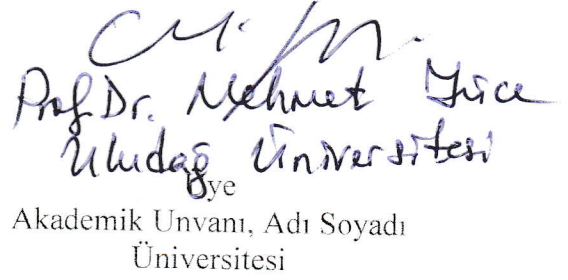 Prof. Dr. Mehmet Yüce
Uludağ Üniversitesi
Üye
Akademik Unvanı, Adı Soyadı
Üniversitesi